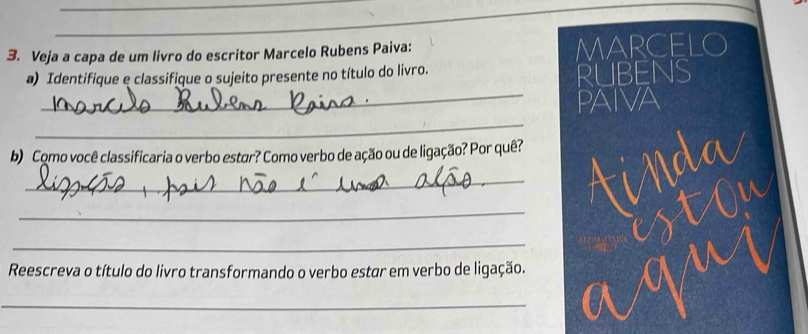 3. Veja a capa de um livro do escritor Marcelo Rubens Paiva:
a) Identifique e classifique o sujeito presente no título do livro.
Marcelo Rubens Paiva.
b) Como você classificaria o verbo estar? Como verbo de ação ou de ligação? Por quê?
Ligação, pois não é uma ação.
Reescreva o título do livro transformando o verbo estar em verbo de ligação.
MARCELO
RUBENS
PAIVA
Ainda
estou
aqui